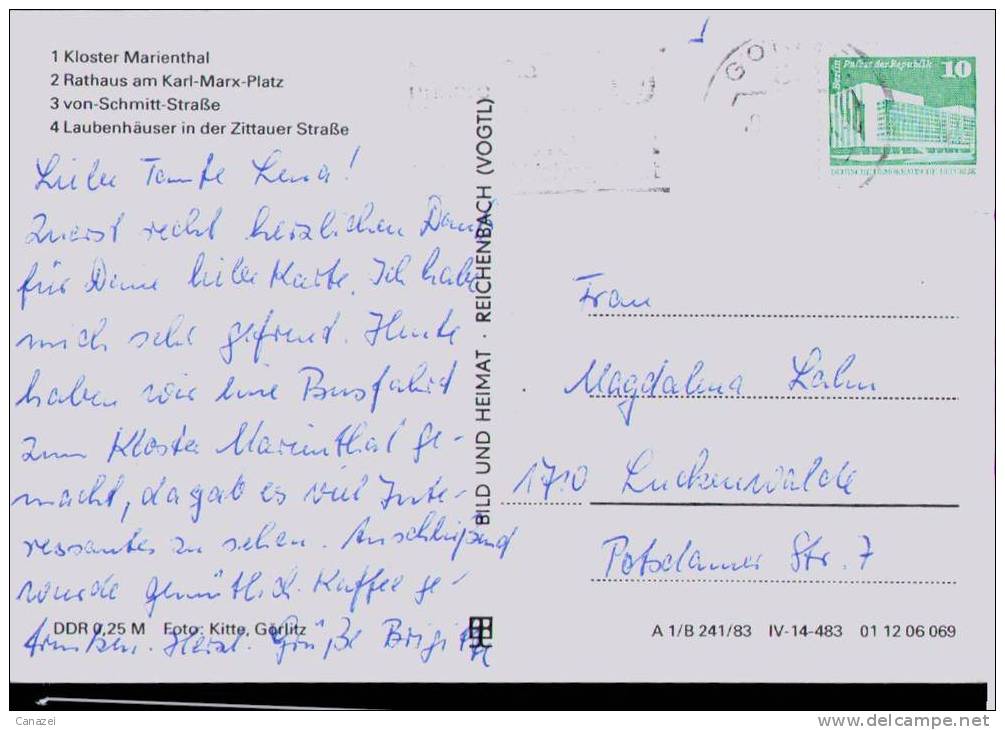 1 Kloster Marienthal
2 Rathaus am Karl-Marx-Platz
3 von-Schmitt-Straße
4 Laubenhäuser in der Zittauer Straße
Liebe Tante Lena!
Zuerst recht herzlichen Dank
für Deine liebe Karte. Ich habe
mich sehr gefreut. Heute
haben wir eine Busfahrt
zum Kloster Marienthal ge-
macht, da gab es viel Inte-
ressantes zu sehen. Anschließend
wurde gemütlich Kaffee ge-
trunken. Herzl. Grüße Brigitte
DDR 0,25 M Foto: Kitte, Görlitz
BILD UND HEIMAT · REICHENBACH (VOGTL)
GÖ
Berlin Palast der Republik 10
DEUTSCHE DEMOKRATISCHE REPUBLIK
Frau
Magdalena Lahn
1710 Luckenwalde
Potsdamer Str. 7
A 1/B 241/83 IV-14-483 01 12 06 069
Canazei
www.delcampe.net